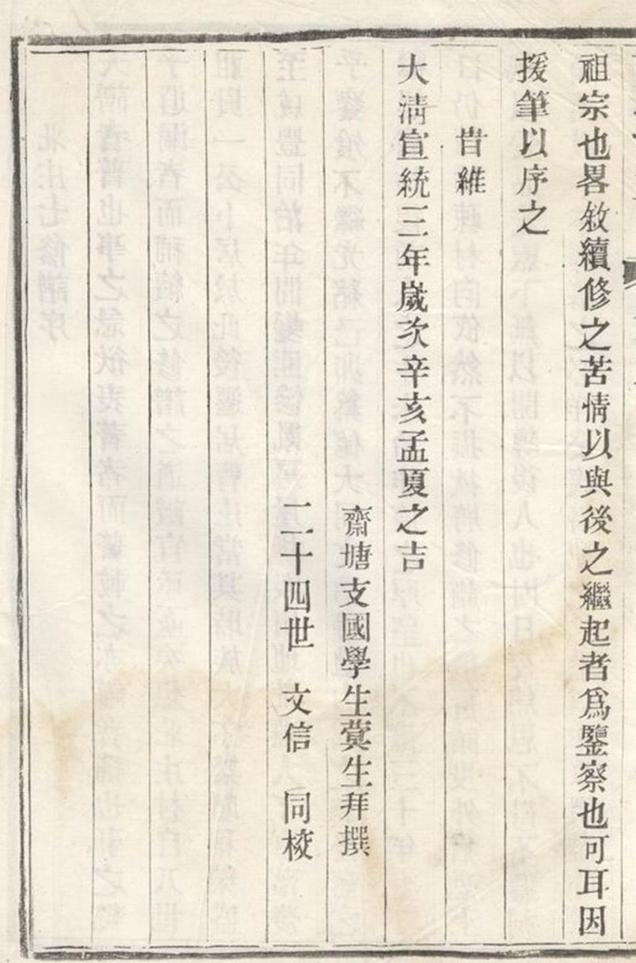 祖宗也畧敘續修之苦情以與後之繼起者爲鑒察也可耳因
援筆以序之
旹維
大淸宣統三年歲次辛亥孟夏之吉
齋塘支國學生蓂生拜撰
二十四世 文信 同校